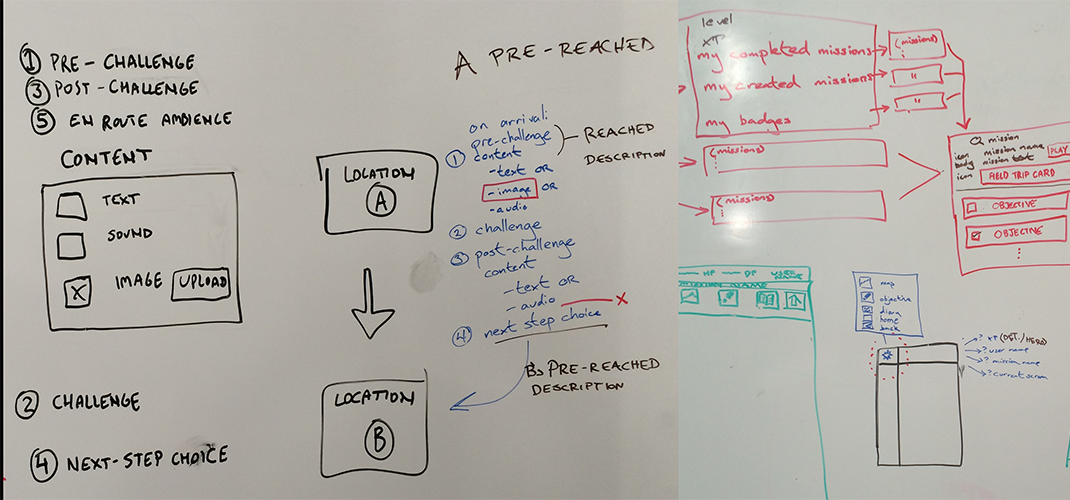 ① PRE-CHALLENGE
③ POST-CHALLENGE
⑤ EN ROUTE AMBIENCE
CONTENT
TEXT
SOUND
X IMAGE UPLOAD
② CHALLENGE
④ NEXT-STEP CHOICE
LOCATION
A
LOCATION
B
A PRE-REACHED
on arrival:
pre-challenge
① content
- text OR
- image OR
- audio
REACHED
DESCRIPTION
② challenge
③ post-challenge
content
- text OR
- audio X
④ next step choice
Bs PRE-REACHED
DESCRIPTION
level
XP
my completed missions
my created missions
my badges
(missions)
:
"
"
(missions)
:
(missions)
:
mission
icon mission name PLAY
body mission text
icon FIELD TRIP CARD
OBJECTIVE
OBJECTIVE
:
HP DP USER NAME
NAME
map
objective
diary
home
back
? XP (DET./HERO)
? user name
? mission name
? current screen